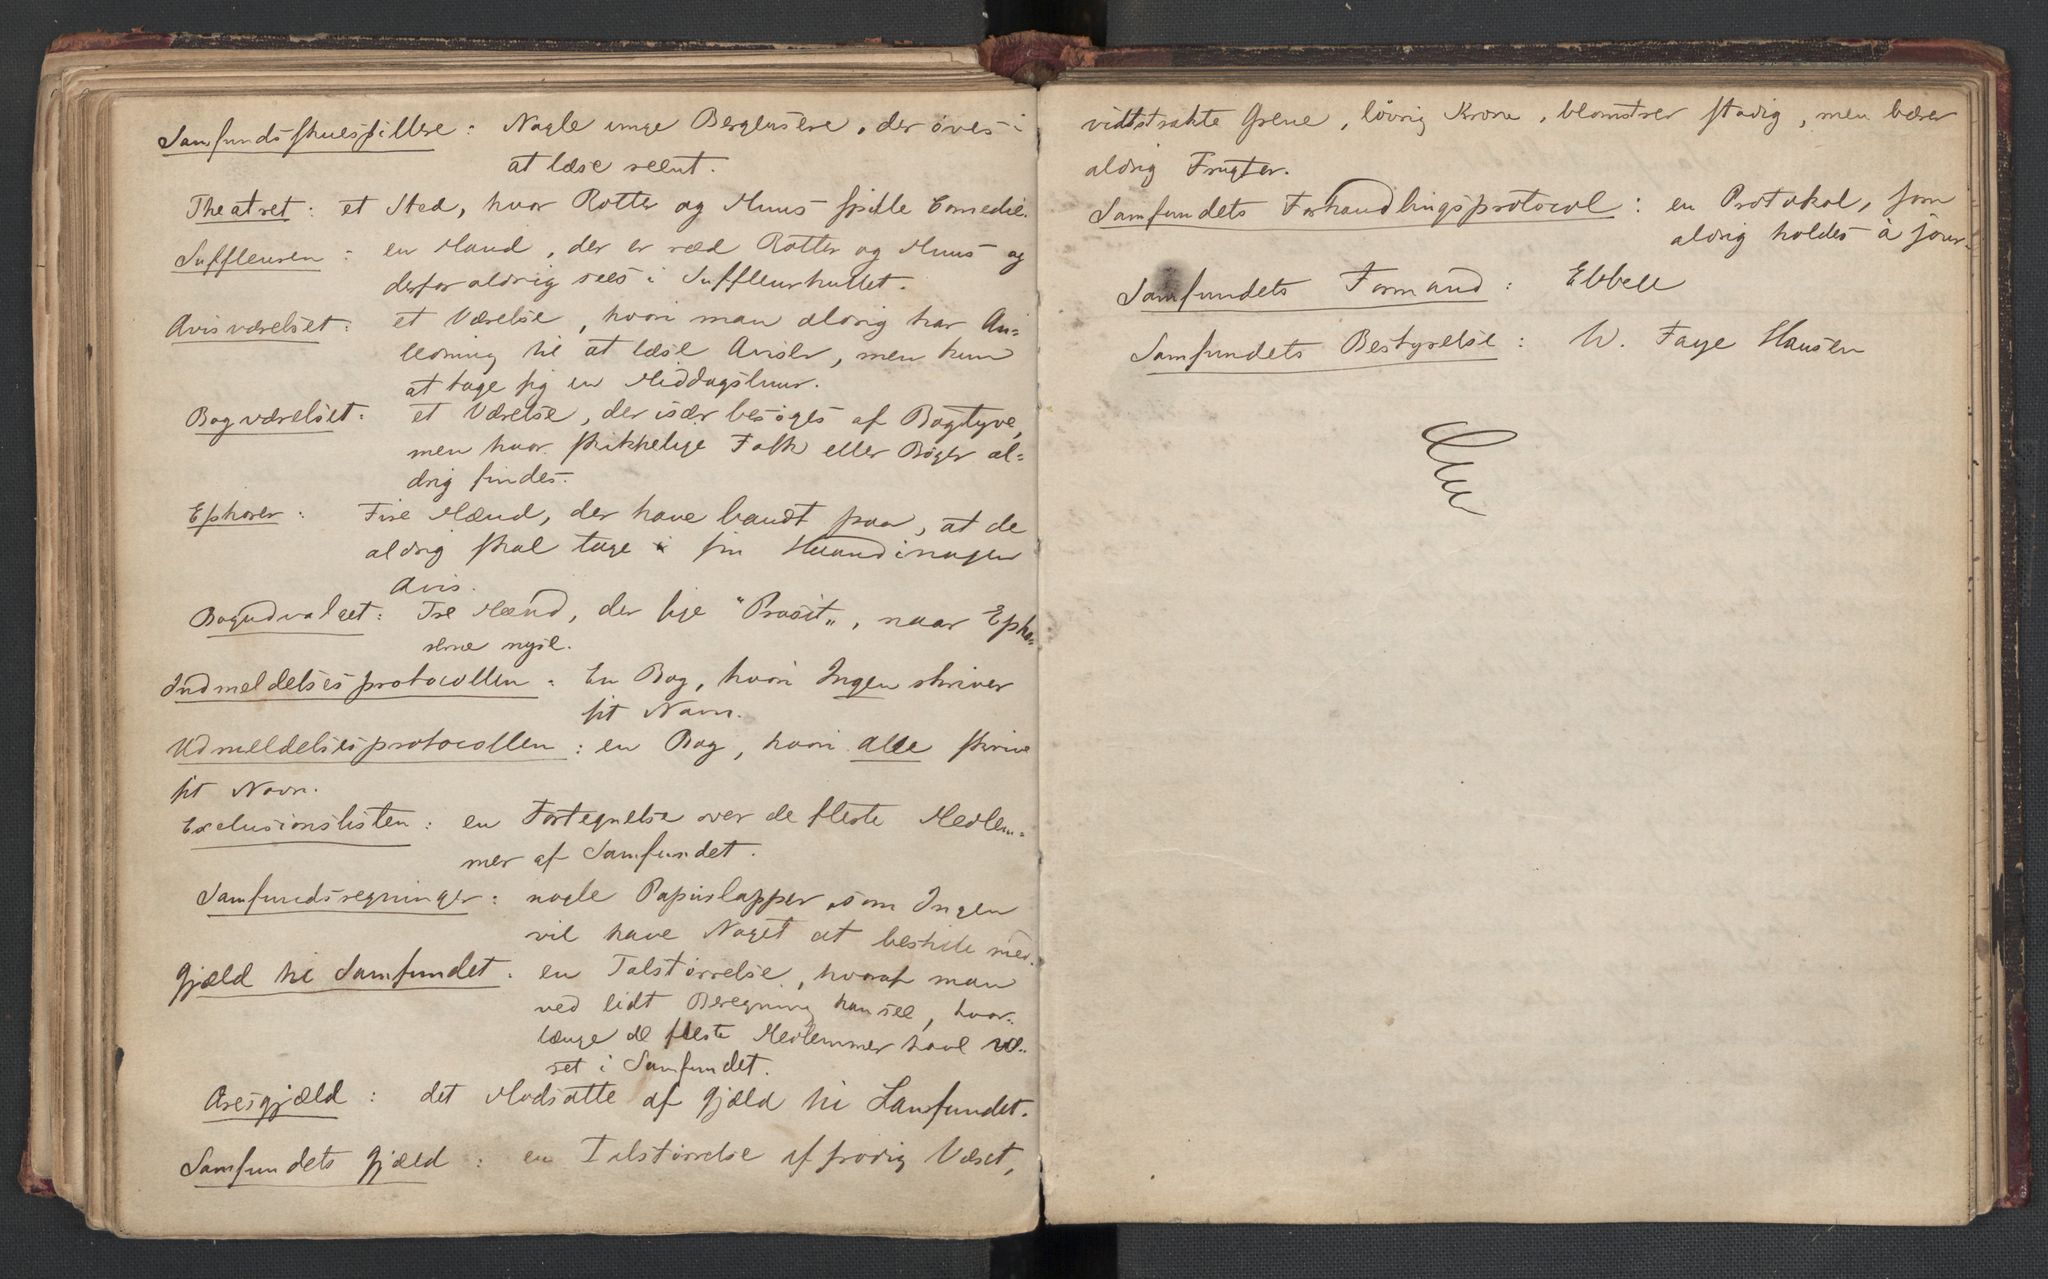 Samfundsskuespillere: Nogle unge Bergensere, der øves i
at læse reent.
Theatret: et Sted, hvor Rotter og Muus spille Comedie.
Suffleuren: en Mand, der er ræd Rotter og Muus og
derfor aldrig sees i Suffleurhullet.
Avisværelset: et Værelse, hvori man aldrig har An-
ledning til at læse Aviser, men kun
at tage sig en Middagsluur.
Bogværelset: et Værelse, der især besøges af Bogtyve,
men hvor skikkelige Folk eller Bøger al-
drig findes.
Ephorer: Fire Mænd, der have bandt paa, at de
aldrig skal tage i sin Haand i nogen
Avis.
Bogudvalget: Tre Mænd, der sige "Prosit", naar Epho-
rerne nyse.
Indmeldelsesprotocollen: En Bog, hvori Ingen skriver
sit Navn.
Udmeldelsesprotocollen: en Bog, hvori Alle skrive
sit Navn.
Exclusionslisten: en Fortegnelse over de fleste Medlem-
mer af Samfundet.
Samfundsregninger: nogle Papirslapper, som Ingen
vil have Noget at bestille med.
Gjæld til Samfundet: en Talstørrelse, hvoraf man
ved lidt Beregning kan see, hvor-
længe de fleste Medlemmer have væ-
ret i Samfundet.
Æresgjæld: det Modsatte af Gjæld til Samfundet.
Samfundets Gjæld: en Talstørrelse af frodig Væxt,
vidtstrakte Grene, løvrig Krone, blomstrer stadig, men bærer
aldrig Frugter.
Samfundets Forhandlingsprotocol: en Protokol, som
aldrig holdes à jour.
Samfundets Formand: Ebbell
Samfundets Bestyrelse: W. Faye Hansen